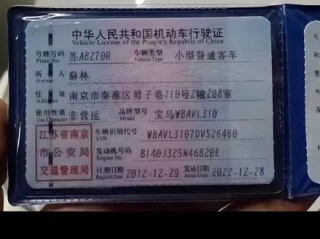 中华人民共和国机动车行驶证
Vehicle License of the People's Republic of China
号牌号码 苏A8Z70R 车辆类型 小型普通客车
Plate No. Vehicle Type
所有人 薛林
住址 南京市秦淮区男子巷110号2幢208室
使用性质 非营运 品牌型号 宝马WBAVL310
江苏省南京 车辆识别代号 WBAVL310TDVS26460
VIN
市公安局 发动机号码
Engine No.
交通管理局 注册日期 2012-12-29 发证日期 2022-12-28